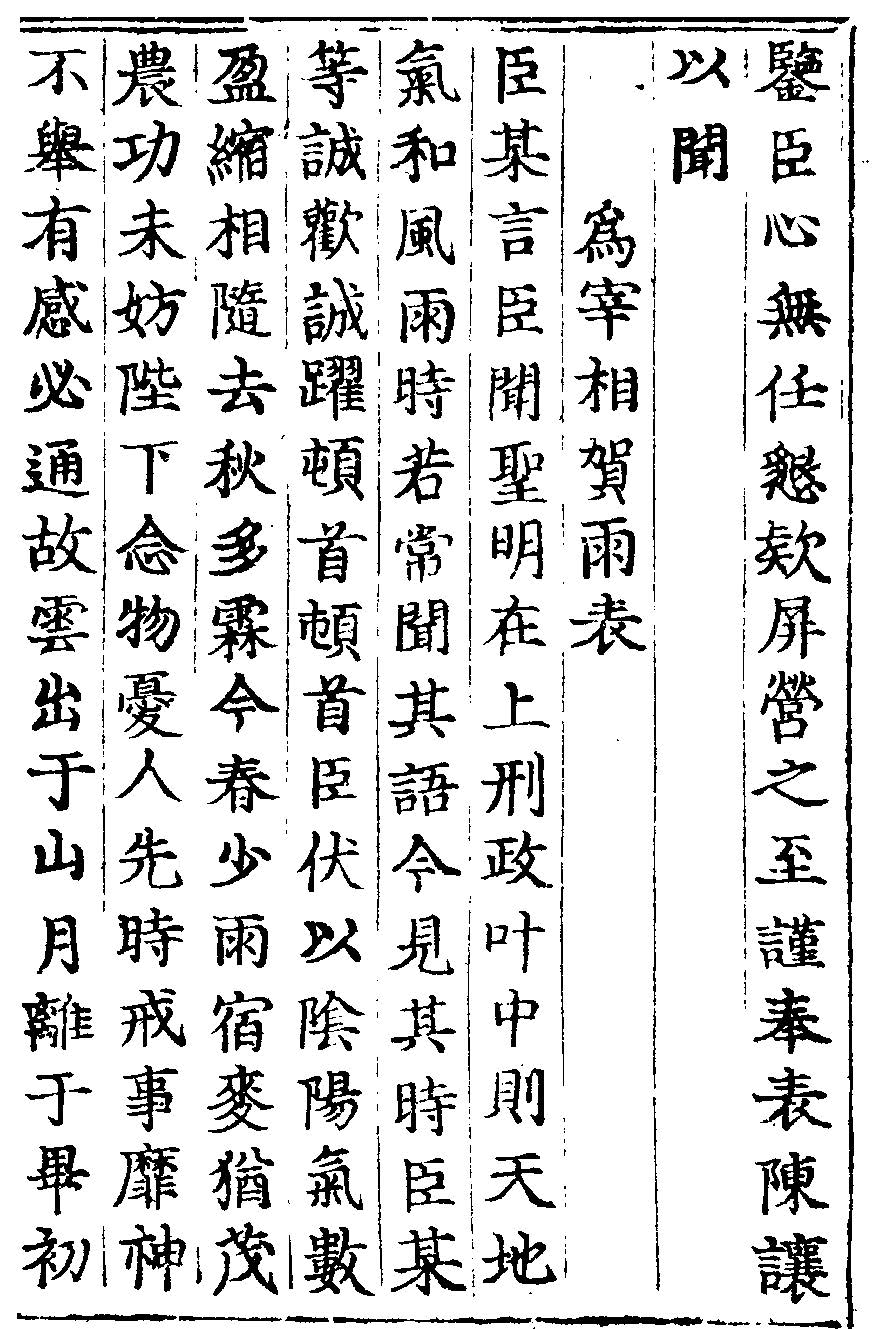 鑒臣心無任懇欵屏營之至謹奉表陳讓
以聞
爲宰相賀雨表
臣某言臣聞聖明在上刑政叶中則天地
氣和風雨時若常聞其語今見其時臣某
等誠歡誠躍頓首頓首臣伏以陰陽氣數
盈縮相隨去秋多霖今春少雨宿麥猶茂
農功未妨陛下念物憂人先時戒事靡神
不舉有感必通故雲出于山月離于畢初